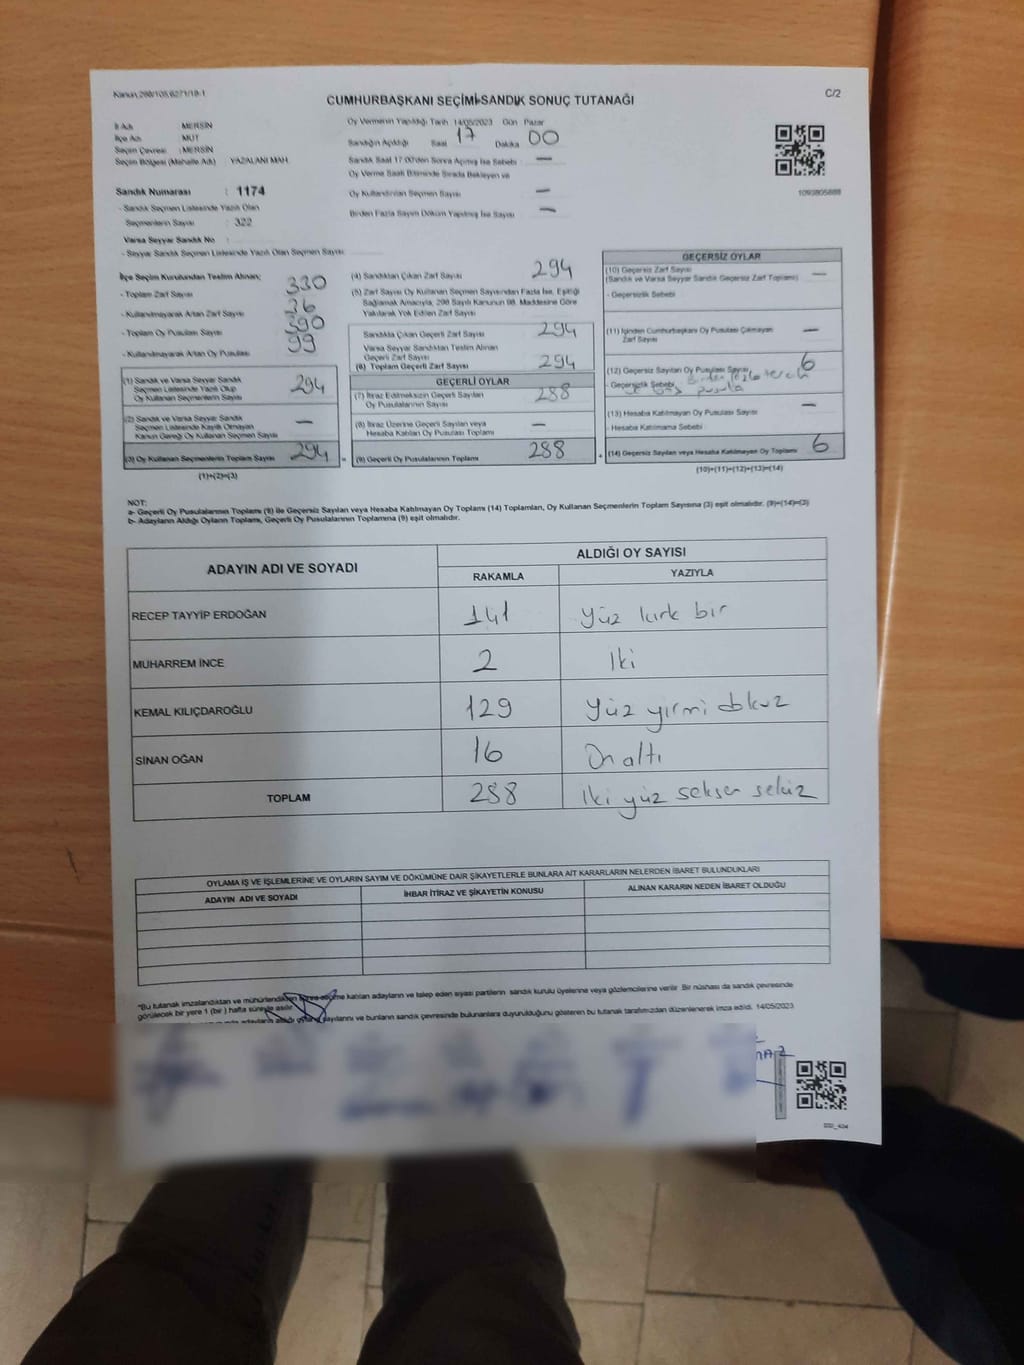 Kanun,298/105,6271/19-1
CUMHURBAŞKANI SEÇİMİ SANDIK SONUÇ TUTANAĞI
C/2
İl Adı : MERSİN
İlçe Adı : MUT
Seçim Çevresi : MERSİN
Seçim Bölgesi (Mahalle Adı) : YAZALANI MAH.
Oy Vermenin Yapıldığı Tarih 14/05/2023 Gün Pazar
Sandığın Açıldığı Saat 17 Dakika 00
Sandık Saat 17:00'den Sonra Açılmış İse Sebebi : —
Oy Verme Saati Bitiminde Sırada Bekleyen ve
Oy Kullandırılan Seçmen Sayısı —
Birden Fazla Sayım Döküm Yapılmış İse Sayısı —
1093805888
Sandık Numarası : 1174
- Sandık Seçmen Listesinde Yazılı Olan
Seçmenlerin Sayısı : 322
Varsa Seyyar Sandık No :
- Seyyar Sandık Seçmen Listesinde Yazılı Olan Seçmen Sayısı :
İlçe Seçim Kurulundan Teslim Alınan;
- Toplam Zarf Sayısı 330
- Kullanılmayarak Artan Zarf Sayısı 36
- Toplam Oy Pusulası Sayısı 390
- Kullanılmayarak Artan Oy Pusulası 99
(1) Sandık ve Varsa Seyyar Sandık
Seçmen Listesinde Yazılı Olup
Oy Kullanan Seçmenlerin Sayısı 294
(2) Sandık ve Varsa Seyyar Sandık
Seçmen Listesinde Kayıtlı Olmayan
Kanun Gereği Oy Kullanan Seçmen Sayısı —
(3) Oy Kullanan Seçmenlerin Toplam Sayısı 294
(1)+(2)=(3)
(4) Sandıktan Çıkan Zarf Sayısı 294
(5) Zarf Sayısı Oy Kullanan Seçmen Sayısından Fazla İse, Eşitliği
Sağlamak Amacıyla, 298 Sayılı Kanunun 98. Maddesine Göre
Yakılarak Yok Edilen Zarf Sayısı
Sandıkta Çıkan Geçerli Zarf Sayısı 294
Varsa Seyyar Sandıktan Teslim Alınan
Geçerli Zarf Sayısı
(6) Toplam Geçerli Zarf Sayısı 294
GEÇERLİ OYLAR
(7) İtiraz Edilmeksizin Geçerli Sayılan
Oy Pusulalarının Sayısı 288
(8) İtiraz Üzerine Geçerli Sayılan veya
Hesaba Katılan Oy Pusulası Toplamı —
= (9) Geçerli Oy Pusulalarının Toplamı 288
GEÇERSİZ OYLAR
(10) Geçersiz Zarf Sayısı —
(Sandık ve Varsa Seyyar Sandık Geçersiz Zarf Toplamı)
- Geçersizlik Sebebi
(11) İçinden Cumhurbaşkanı Oy Pusulası Çıkmayan
Zarf Sayısı —
(12) Geçersiz Sayılan Oy Pusulası Sayısı 6
- Geçersizlik Sebebi Birden fazla tercih
ve boş pusula
(13) Hesaba Katılmayan Oy Pusulası Sayısı —
- Hesaba Katılmama Sebebi
+ (14) Geçersiz Sayılan veya Hesaba Katılmayan Oy Toplamı 6
(10)+(11)+(12)+(13)=(14)
NOT:
a- Geçerli Oy Pusulalarının Toplamı (9) ile Geçersiz Sayılan veya Hesaba Katılmayan Oy Toplamı (14) Toplamları, Oy Kullanan Seçmenlerin Toplam Sayısına (3) eşit olmalıdır. (9)+(14)=(3)
b- Adayların Aldığı Oyların Toplamı, Geçerli Oy Pusulalarının Toplamına (9) eşit olmalıdır.
ADAYIN ADI VE SOYADI ALDIĞI OY SAYISI
RAKAMLA YAZIYLA
RECEP TAYYİP ERDOĞAN 141 Yüz kırk bir
MUHARREM İNCE 2 İki
KEMAL KILIÇDAROĞLU 129 Yüz yirmi dokuz
SİNAN OĞAN 16 On altı
TOPLAM 288 İki yüz seksen sekiz
OYLAMA İŞ VE İŞLEMLERİNE VE OYLARIN SAYIM VE DÖKÜMÜNE DAİR ŞİKAYETLERLE BUNLARA AİT KARARLARIN NELERDEN İBARET BULUNDUKLARI
ADAYIN ADI VE SOYADI İHBAR İTİRAZ VE ŞİKAYETİN KONUSU ALINAN KARARIN NEDEN İBARET OLDUĞU
*Bu tutanak imzalandıktan ve mühürlendikten sonra seçime katılan adayların ve talep eden siyasi partilerin sandık kurulu üyelerine veya gözlemcilerine verilir. Bir nüshası da sandık çevresinde
görülecek bir yere 1 (bir ) hafta süreyle asılır.
adayların aldığı oyların sayılarını ve bunların sandık çevresinde bulunanlara duyurulduğunu gösteren bu tutanak tarafımızdan düzenlenerek imza edildi. 14/05/2023